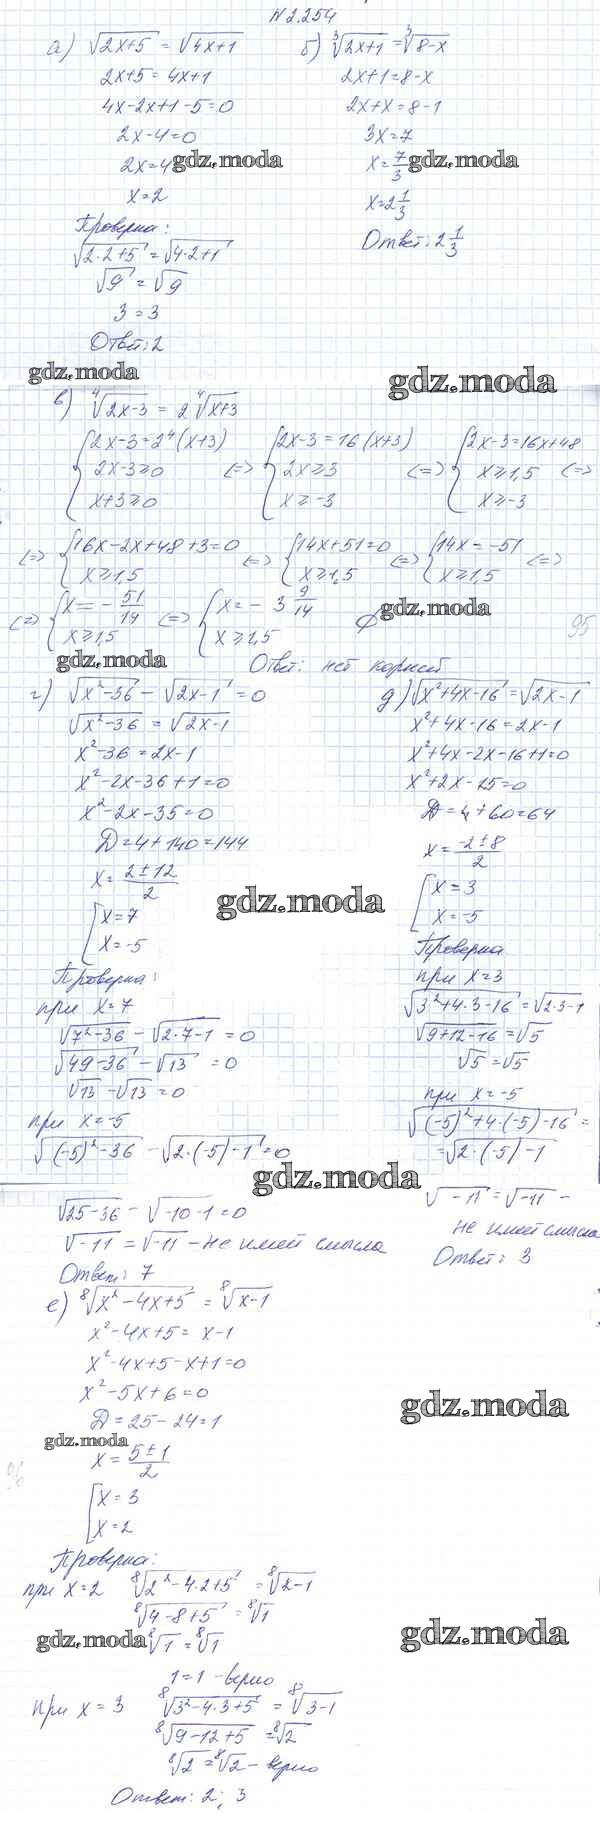 N 2.254
а) √(2x+5) = √(4x+1)
2x+5 = 4x+1
4x-2x+1-5=0
2x-4=0
2x=4
x=2
Проверка:
√(2·2+5) = √(4·2+1)
√9 = √9
3 = 3
Ответ: 2
б) ³√(2x+1) = ³√(8-x)
2x+1=8-x
2x+x=8-1
3x=7
x=7/3
x=2 1/3
Ответ: 2 1/3
gdz.moda
gdz.moda
gdz.moda
gdz.moda
в) ⁴√(2x-3) = 2 ⁴√(x+3)
{ 2x-3=2⁴(x+3)
2x-3⩾0
x+3⩾0
<=> { 2x-3=16(x+3)
2x⩾3
x⩾-3
<=> { 2x-3=16x+48
x⩾1,5
x⩾-3
<=>
<=> { 16x-2x+48+3=0
x⩾1,5
<=> { 14x+51=0
x⩾1,5
<=> { 14x=-51
x⩾1,5
<=>
<=> { x=-51/14
x⩾1,5
<=> { x=-3 9/14
x⩾1,5
∅
95
gdz.moda
gdz.moda
Ответ: нет корней
г) √(x²-36) - √(2x-1) = 0
√(x²-36) = √(2x-1)
x²-36=2x-1
x²-2x-36+1=0
x²-2x-35=0
D=4+140=144
x= (2±12)/2
[ x=7
x=-5
Проверка:
при x=7
√(7²-36) - √(2·7-1) = 0
√(49-36) - √13 = 0
√13 - √13 = 0
при x=-5
√((-5)²-36) - √(2·(-5)-1) = 0
√(25-36) - √(-10-1) = 0
√-11 = √-11 - не имей смысла
Ответ: 7
д) √(x²+4x-16) = √(2x-1)
x²+4x-16=2x-1
x²+4x-2x-16+1=0
x²+2x-15=0
D=4+60=64
x= (-2±8)/2
[ x=3
x=-5
Проверка
при x=3
√(3²+4·3-16) = √(2·3-1)
√(9+12-16) = √5
√5 = √5
при x=-5
√((-5)²+4·(-5)-16) =
= √(2·(-5)-1)
√-11 = √-11 -
не имей смысла
Ответ: 3
gdz.moda
gdz.moda
е) ⁸√(x²-4x+5) = ⁸√(x-1)
x²-4x+5=x-1
x²-4x+5-x+1=0
x²-5x+6=0
D=25-24=1
x= (5±1)/2
[ x=3
x=2
gdz.moda
gdz.moda
Проверка:
при x=2 ⁸√(2²-4·2+5) = ⁸√(2-1)
⁸√(4-8+5) = ⁸√1
⁸√1 = ⁸√1
1=1 - верно
gdz.moda
gdz.moda
при x=3 ⁸√(3²-4·3+5) = ⁸√(3-1)
⁸√(9-12+5) = ⁸√2
⁸√2 = ⁸√2 - верно
Ответ: 2; 3